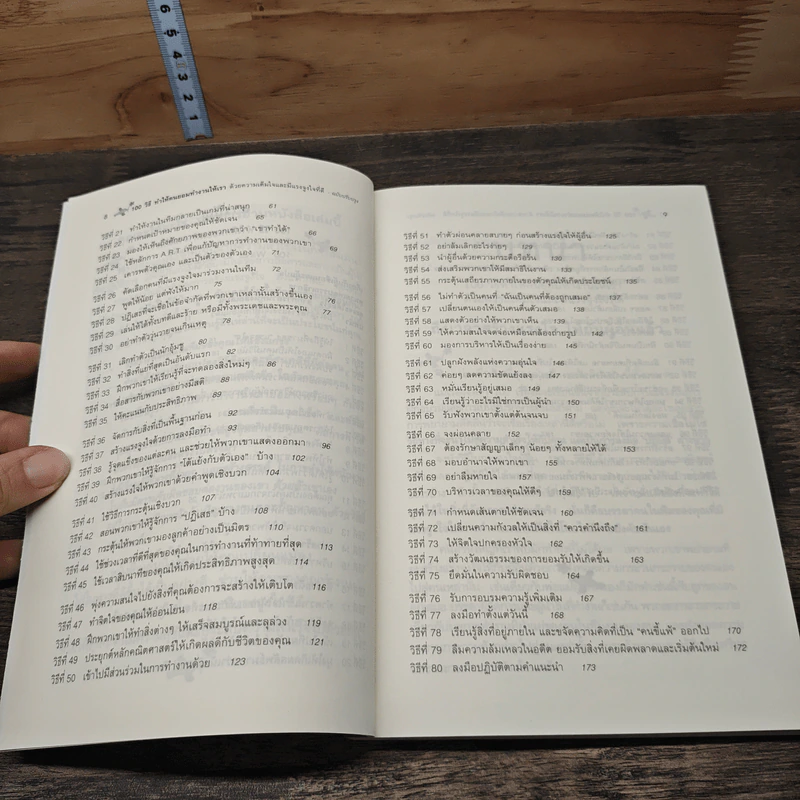 6 5 4 3 2 1
8 100 วิธี ทำให้คนยอมทำงานให้เรา ด้วยความเต็มใจและมีแรงจูงใจที่ดี
วิธีที่ 21 ทำให้งานในทีมกลายเป็นเกมที่น่าสนุก 61
วิธีที่ 22 กำหนดเป้าหมายของคุณให้ชัดเจน 65
วิธีที่ 23 มองให้เห็นถึงศักยภาพของพวกเขาว่า "เขาทำได้" 66
วิธีที่ 24 ใช้หลักการ A R T เพื่อแก้ปัญหาการทำงานของพวกเขา 69
วิธีที่ 25 เคารพตัวคุณเอง และเป็นตัวของตัวเอง 71
วิธีที่ 26 คัดเลือกคนที่มีแรงจูงใจมาร่วมงานในทีม 72
วิธีที่ 27 พูดให้น้อย แต่ฟังให้มาก 75
วิธีที่ 28 ปฏิเสธที่จะเชื่อในข้อจำกัดที่พวกเขาเหล่านั้นสร้างขึ้นเอง 76
วิธีที่ 29 เล่นให้ได้ทั้งบทดีและร้าย หรือมีทั้งพระเดชและพระคุณ 77
วิธีที่ 30 อย่าทำตัววุ่นวายจนเกินเหตุ 78
วิธีที่ 31 เลิกทำตัวเป็นนักอุ้มชู 80
วิธีที่ 32 ทำสิ่งที่แย่ที่สุดเป็นอันดับแรก 82
วิธีที่ 33 ฝึกพวกเขาให้เรียนรู้ที่จะทดลองสิ่งใหม่ๆ 86
วิธีที่ 34 สื่อสารกับพวกเขาอย่างมีสติ 88
วิธีที่ 35 ให้คะแนนกับประสิทธิภาพ 89
วิธีที่ 36 จัดการกับสิ่งที่เป็นพื้นฐานก่อน 92
วิธีที่ 37 สร้างแรงจูงใจด้วยการลงมือทำ 93
วิธีที่ 38 รู้จุดแข็งของแต่ละคน และช่วยให้พวกเขาแสดงออกมา 96
วิธีที่ 39 ฝึกพวกเขาให้รู้จักการ "โต้แย้งกับตัวเอง" บ้าง 102
วิธีที่ 40 สร้างแรงใจให้พวกเขาด้วยคำพูดเชิงบวก 104
วิธีที่ 41 ใช้วิธีการกระตุ้นเชิงบวก 107
วิธีที่ 42 สอนพวกเขาให้รู้จักการ "ปฏิเสธ" บ้าง 108
วิธีที่ 43 กระตุ้นให้พวกเขามองลูกค้าอย่างเป็นมิตร 110
วิธีที่ 44 ใช้ช่วงเวลาที่ดีที่สุดของคุณในการทำงานที่ท้าทายที่สุด 113
วิธีที่ 45 ใช้เวลาสิบนาทีของคุณให้เกิดประสิทธิภาพสูงสุด 114
วิธีที่ 46 พุ่งความสนใจไปยังสิ่งที่คุณต้องการจะสร้างให้เติบโต 116
วิธีที่ 47 ทำจิตใจของคุณให้อ่อนโยน 118
วิธีที่ 48 ฝึกพวกเขาให้ทำสิ่งต่างๆ ให้เสร็จสมบูรณ์และลุล่วง 119
วิธีที่ 49 ประยุกต์หลักคณิตศาสตร์ให้เกิดผลดีกับชีวิตของคุณ 121
วิธีที่ 50 เข้าไปมีส่วนร่วมในการทำงานด้วย 123
9
วิธีที่ 51 ทำตัวผ่อนคลายสบายๆ ก่อนสร้างแรงใจให้ผู้อื่น 125
วิธีที่ 52 อย่าล้มเลิกอะไรง่ายๆ 129
วิธีที่ 53 นำผู้อื่นด้วยความกระตือรือร้น 130
วิธีที่ 54 ส่งเสริมพวกเขาให้มีสมาธิในงาน 133
วิธีที่ 55 กระตุ้นเสถียรภาพภายในของตัวคุณให้เกิดประโยชน์ 135
วิธีที่ 56 ไม่ทำตัวเป็นคนที่ "ฉันเป็นคนที่ต้องถูกเสมอ" 137
วิธีที่ 57 เปลี่ยนตนเองให้เป็นคนตื่นตัวเสมอ 138
วิธีที่ 58 แสดงตัวอย่างให้พวกเขาเห็น 139
วิธีที่ 59 ให้ความสนใจจดจ่อเหมือนกล้องถ่ายรูป 142
วิธีที่ 60 มองการบริหารให้เป็นเรื่องง่าย 145
วิธีที่ 61 ปลูกฝังพลังแห่งความอุ่นใจ 146
วิธีที่ 62 ค่อยๆ ลดความขัดแย้งลง 147
วิธีที่ 63 หมั่นเรียนรู้อยู่เสมอ 149
วิธีที่ 64 เรียนรู้ว่าอะไรมิใช่การเป็นผู้นำ 150
วิธีที่ 65 รับฟังพวกเขาตั้งแต่ต้นจนจบ 151
วิธีที่ 66 จงผ่อนคลาย 152
วิธีที่ 67 ต้องรักษาสัญญาเล็กๆ น้อยๆ ทั้งหลายให้ได้ 153
วิธีที่ 68 มอบอำนาจให้พวกเขา 155
วิธีที่ 69 อย่าลืมหายใจ 157
วิธีที่ 70 บริหารเวลาของคุณให้ดีๆ 159
วิธีที่ 71 กำหนดเส้นตายให้ชัดเจน 160
วิธีที่ 72 เปลี่ยนความกังวลให้เป็นสิ่งที่ "ควรคำนึงถึง" 161
วิธีที่ 73 ให้จิตใจปกครองหัวใจ 162
วิธีที่ 74 สร้างวัฒนธรรมของการยอมรับให้เกิดขึ้น 163
วิธีที่ 75 ยึดมั่นในความรับผิดชอบ 164
วิธีที่ 76 รับการอบรมความรู้เพิ่มเติม 167
วิธีที่ 77 ลงมือทำตั้งแต่วันนี้ 168
วิธีที่ 78 เรียนรู้สิ่งที่อยู่ภายใน และขจัดความคิดที่เป็น "คนขี้แพ้" ออกไป 170
วิธีที่ 79 ลืมความล้มเหลวในอดีต ยอมรับสิ่งที่เคยผิดพลาดและเริ่มต้นใหม่ 172
วิธีที่ 80 ลงมือปฏิบัติตามคำแนะนำ 173